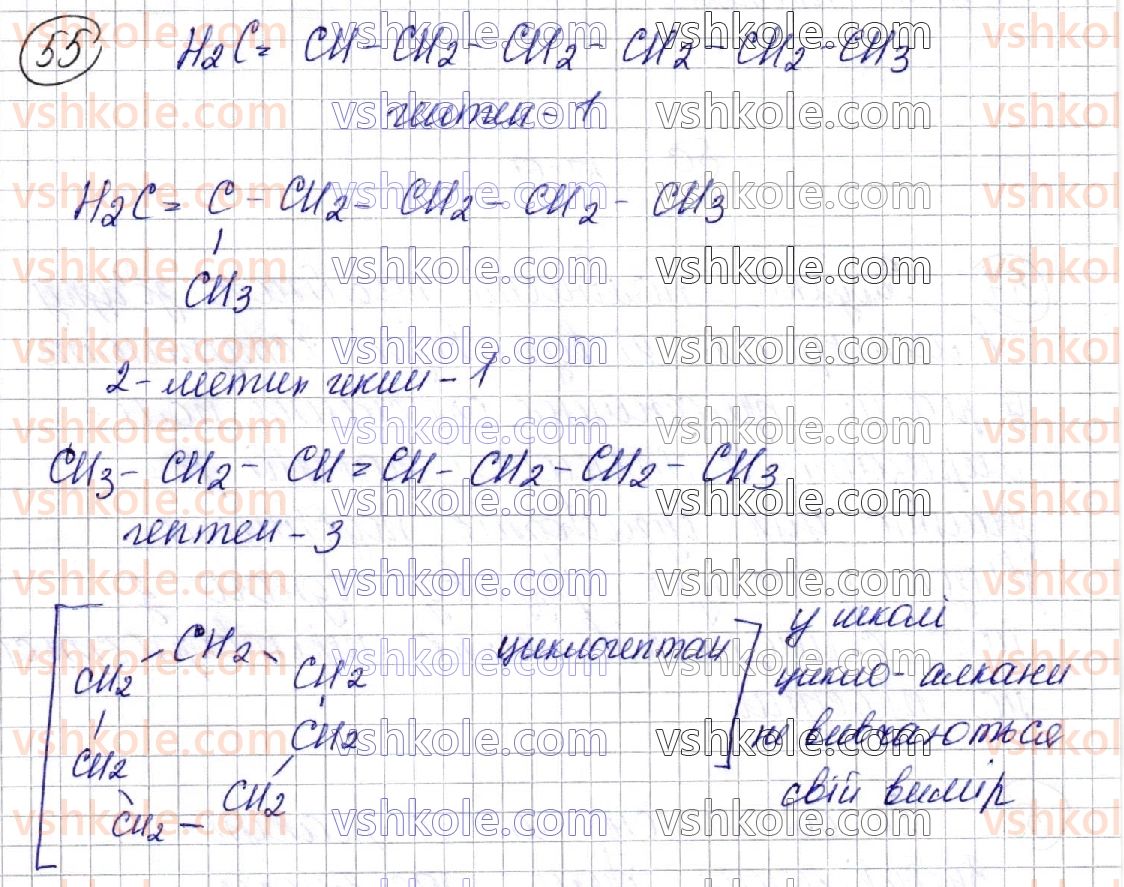 55
H2C = CH - CH2 - CH2 - CH2 - CH2 - CH3
гептен - 1
H2C = C - CH2 - CH2 - CH2 - CH3
CH3
2 - метил гексен - 1
CH3 - CH2 - CH = CH - CH2 - CH2 - CH3
гептен - 3
CH2
циклогептан
CH2
CH2
CH2
CH2
CH2
CH2
у школі
цикло - алкани
не вивчаються
свій вимір
vshkole.com